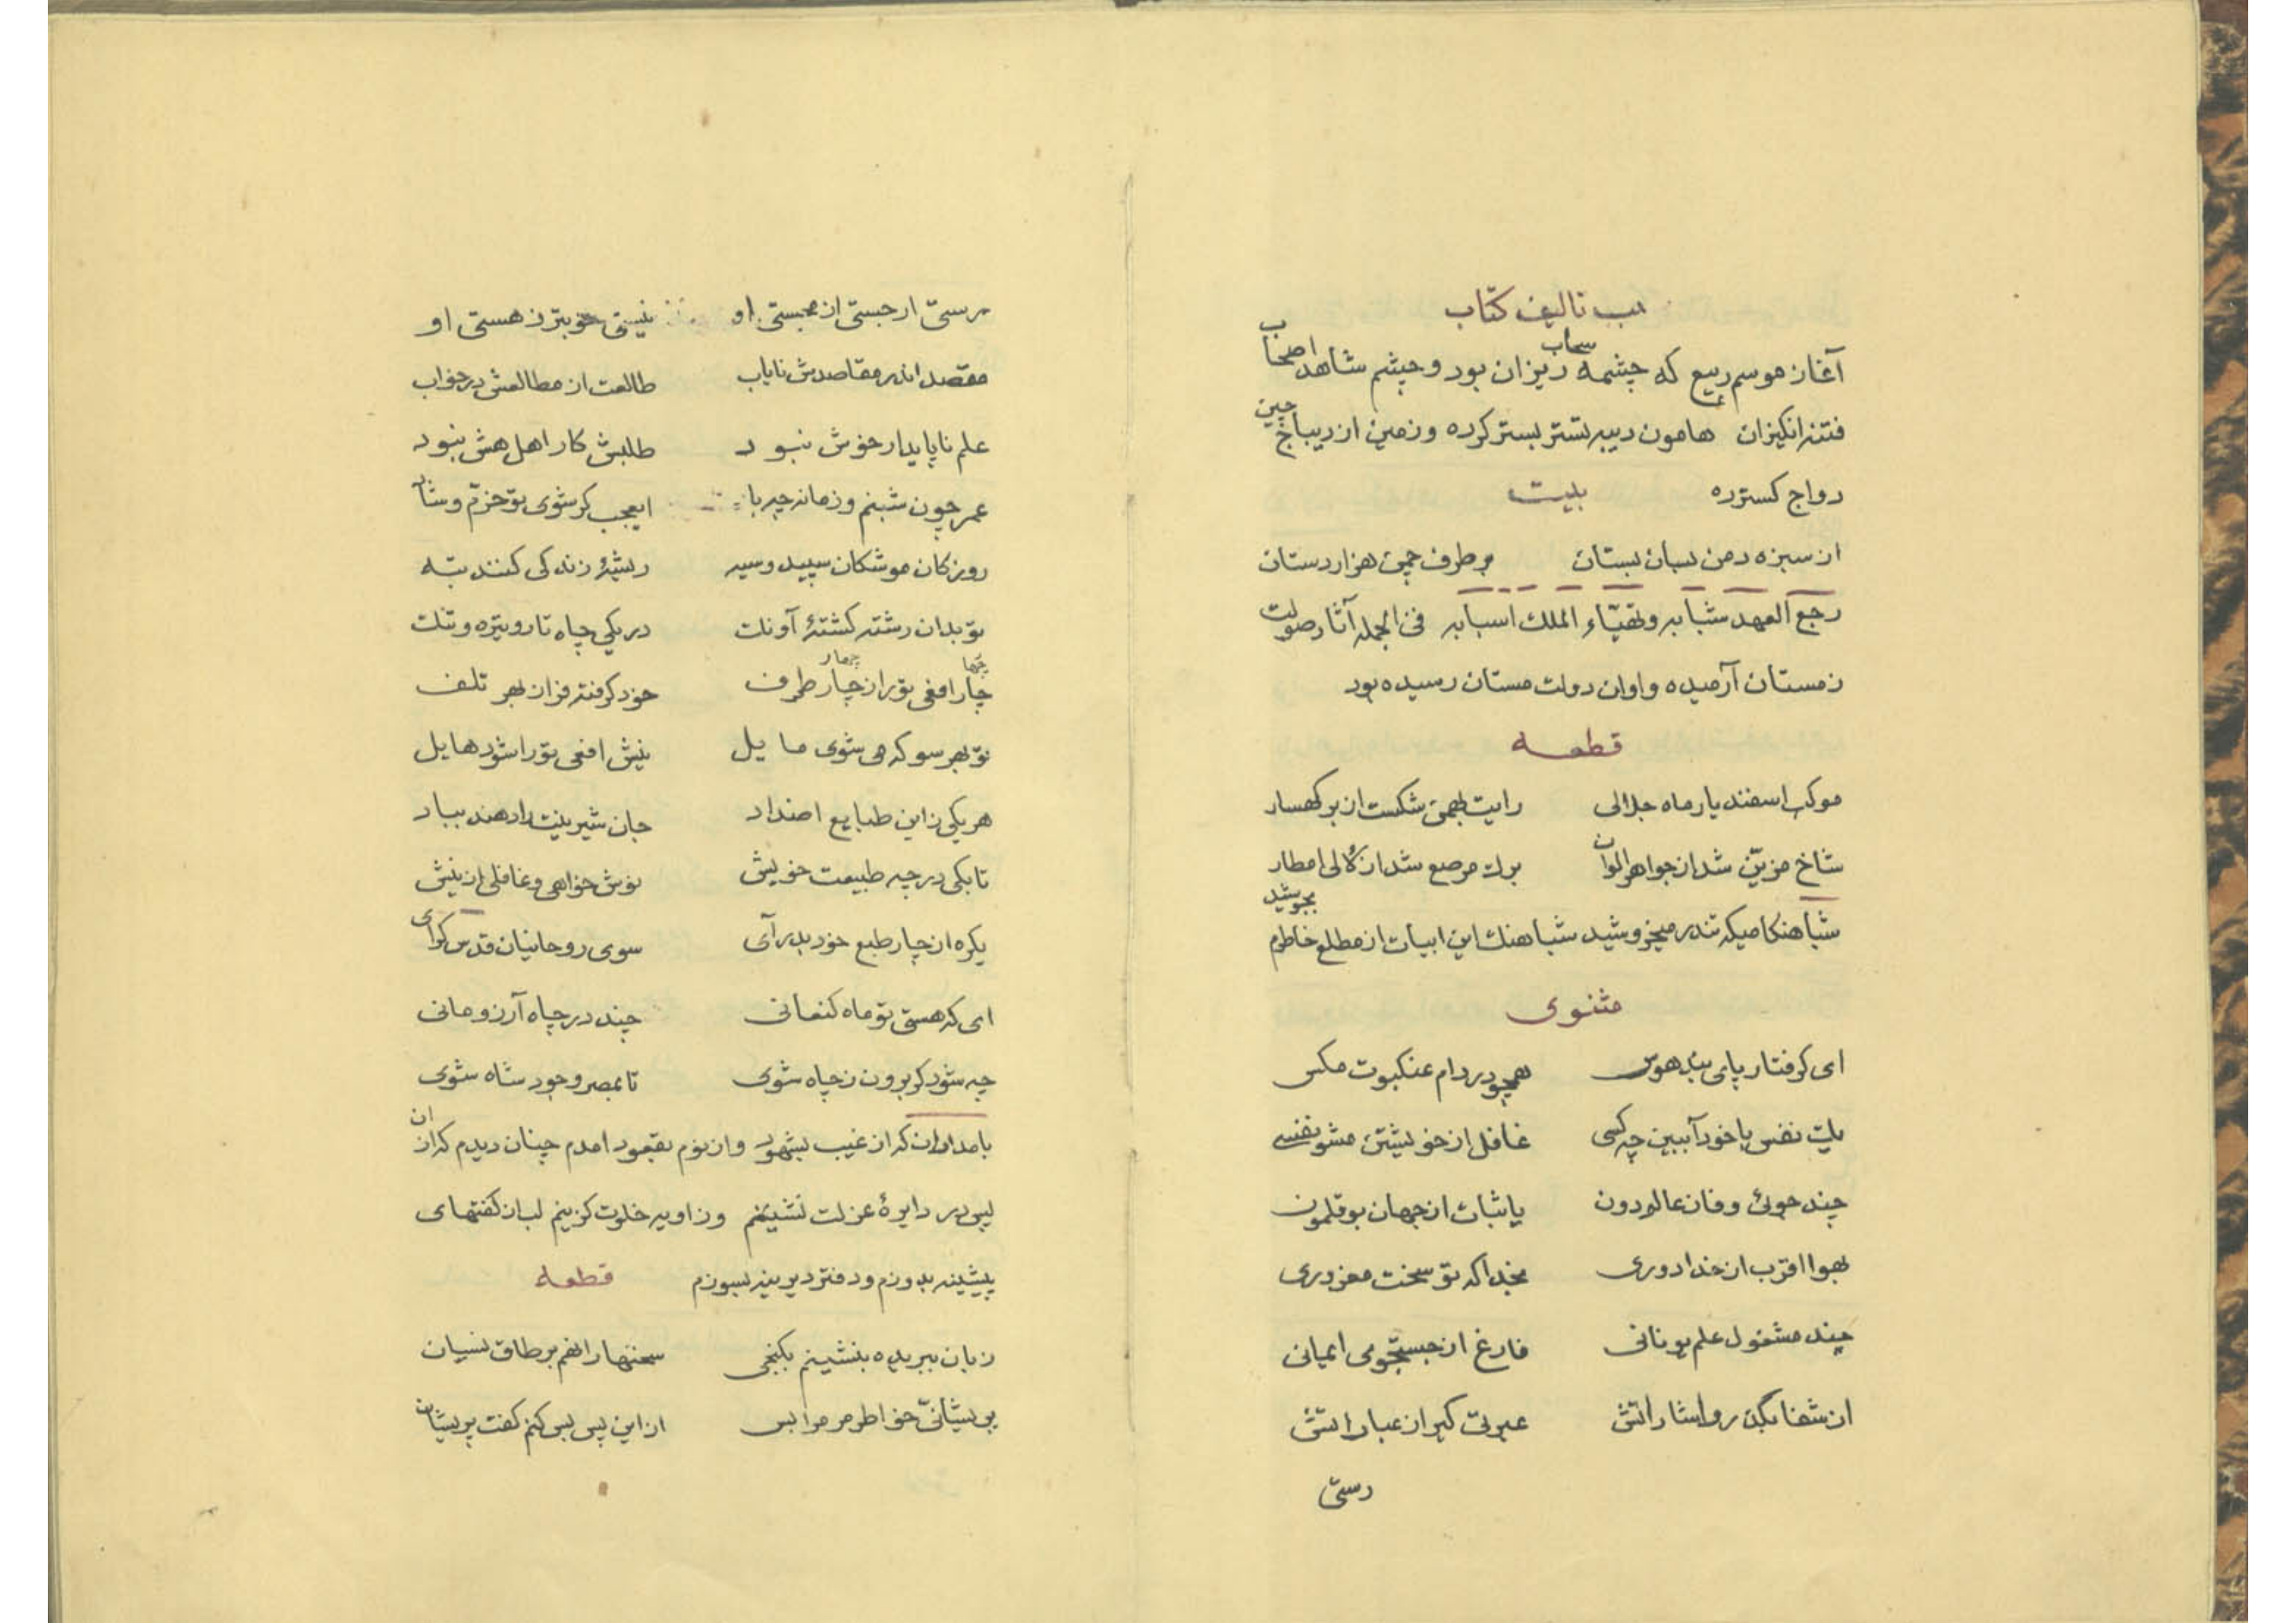 سبب تالیف کتاب
آغاز موسم ربیع که چشمه سحاب ریزان بود و چشم شاهد اصحاب
فتنه انکیزان هامون دیبه تستر بستر کرده و زمین از دیباج چین
دواج کسترده بیت
از سبزه دمن بسان بستان بر طرف چمن هزار دستان
رجع العهد شبابه و تهیّاء الملك اسبابه فی الجمله آثار صولت
زمستان آرمیده و اوان دولت مستان رسیده بود
قطعه
موکب اسفندیار ماه جلالی رایت بهمن شکست از بر کهسار
شاخ مزیّن شد از جواهر الوان برك مرصع شد از لالی امطار
شباهنکامیکه تندر میخروشید شباهنك این ابیات از مطلع خاطرم بجوشید
مثنوی
ای کرفتار پای بند هوس همچو در دام عنکبوت مکس
یك نفس با خود آ ببین چه کسی غافل از خویشتن مشو نفسی
چند جوئی وفا ز عالم دون یا ثبات از جهان بوقلمون
بهوا اقرب از خدا دوری بخدا که تو سخت مغروری
چند مشغول علم یونانی فارغ از جستجوی ایمانی
از شفا بکذر و اشاراتش عبرتی کیر از عباراتش
رستی
رستی ار جستی از مجستی او نیستی خوبتر ز هستی او
مقصد اندر مقاصدش نایاب طالعت از مطالعش در خواب
علم ناپایدار خوش نبود طلبش کار اهل هش نبود
عمر چون شبنم و زمانه چو باد ایعجب کر شوی تو خرّم و شاد
روز کان موشکان سپید و سیه ریشۀ زندکی کنند تبه
تو بدان رشته کشتۀ آونك در یکی چاه تار و تیره و تنك
چار افعی تو را ز چار طرف خود کرفته فزان بهر تلف
تو بهر سو که می شوی مایل نیش افعی تو را شود هایل
هر یکی زاین طبایع اضداد جان شیرینت را دهند بباد
تا بکی در چه طبیعت خویش نوش خواهی و غافلی از نیش
یکره از چار طبع خود بدر آی سوی روحانیان قدس کرای
ای که هستی تو ماه کنعانی چند در چاه آرزو مانی
چه شود کر برون ز چاه شوی تا بمصر وجود شاه شوی
بامدادان که از غیب بشهود و از نوم بقعود امدم چنان دیدم که از ان
پس در دایرۀ عزلت نشینم و زاویه خلوت کزینم لب از کفتهای
پیشینه بدوزم و دفتر دیرینه بسوزم قطعه
زبان ببریده بنشینم بکنجی سخنها را نهم بر طاق نسیان
پریشانیّ خواطر مر مرا بس از این پس بس کنم کفت پریشان